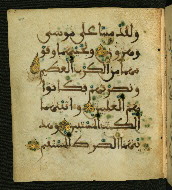 ولقد مننا على موسى
وهرون ونجينهما وقو
مهما من الكرب العظيم
ونصرنهم فكانوا
هم الغلبين واتينهما
الكتب المستبين وهد
ينهما الصرط المستقيم